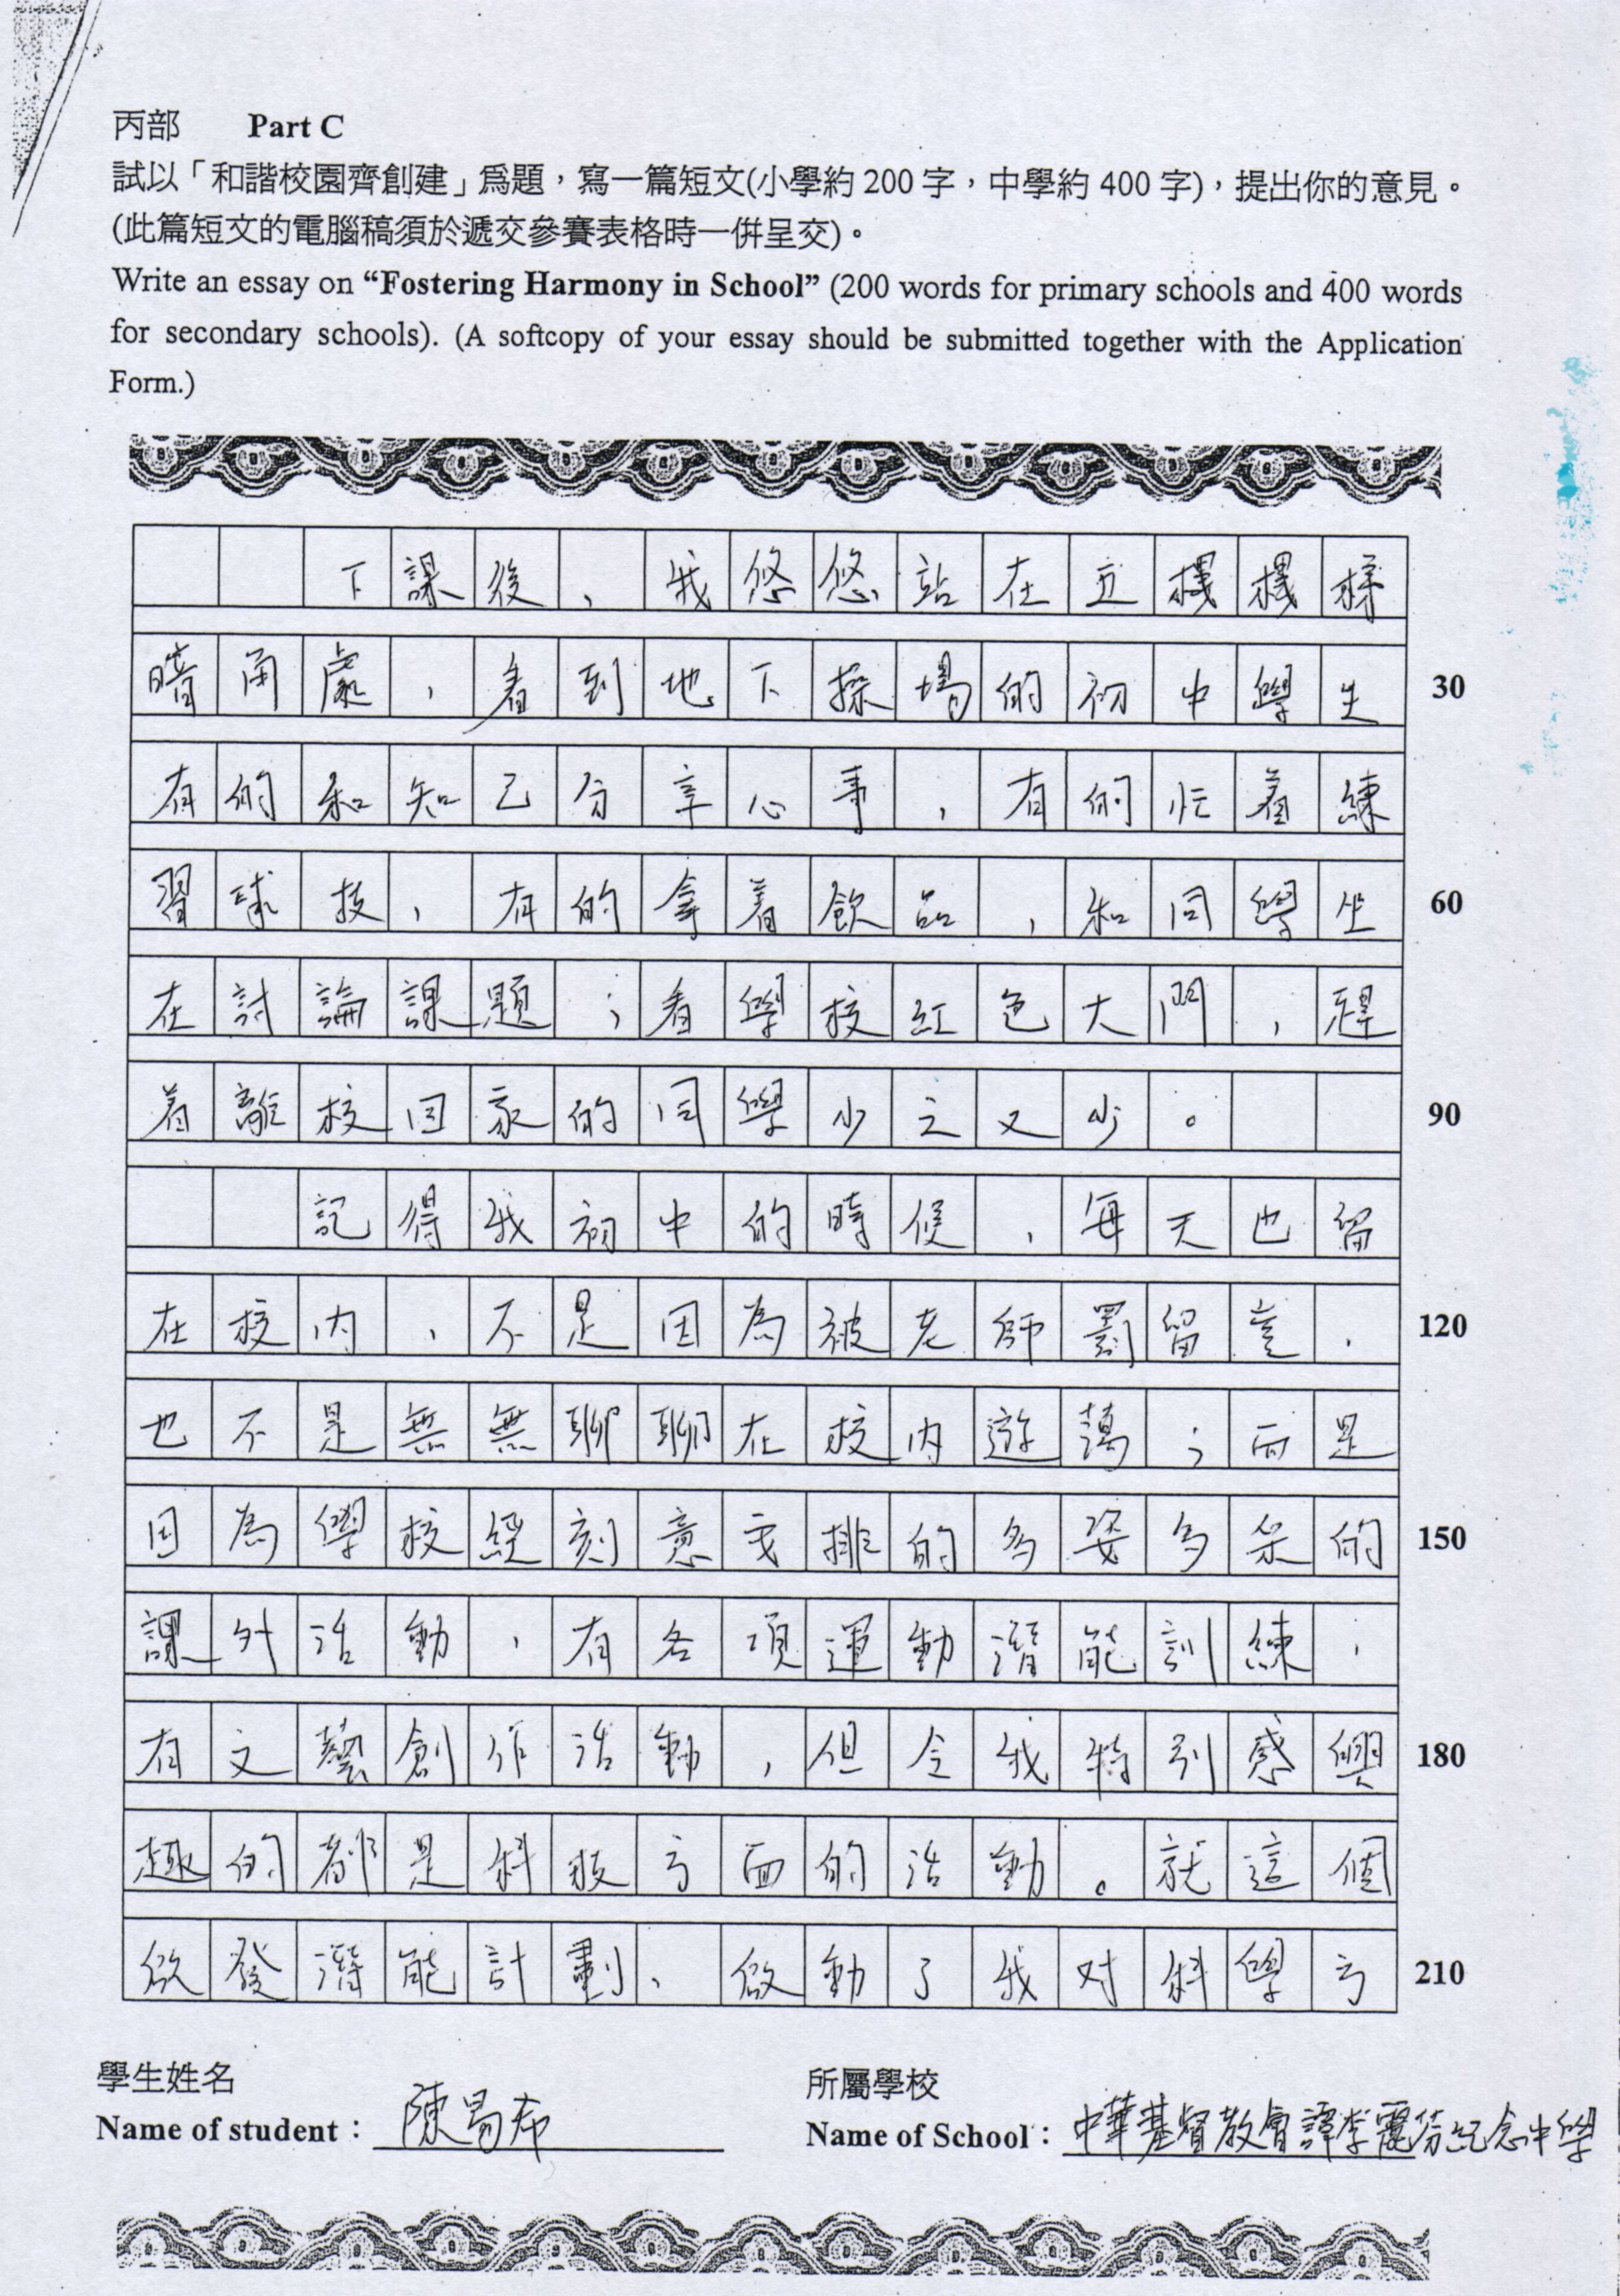 丙部 Part C
試以「和諧校園齊創建」為題，寫一篇短文(小學約 200 字，中學約 400 字)，提出你的意見。
(此篇短文的電腦稿須於遞交參賽表格時一併呈交)。
Write an essay on “Fostering Harmony in School” (200 words for primary schools and 400 words
for secondary schools). (A softcopy of your essay should be submitted together with the Application
Form.)
下課後，我悠悠站在五樓樓梯
暗角處，看到地下操場的初中學生 30
有的和知己分享心事，有的忙着練
習球技，有的拿着飲品，和同學坐 60
在討論課題；看學校紅色大門，趕
着離校回家的同學少之又少。 90
記得我初中的時候，每天也留
在校內，不是因為被老師罰留堂， 120
也不是無無聊聊在校內遊蕩；而是
因為學校經刻意安排的多姿多采的 150
課外活動，有各項運動潛能訓練，
有文藝創作活動，但令我特別感興 180
趣的都是科技方面的活動。就這個
啟發潛能計劃，啟動了我对科學方 210
學生姓名
Name of student： 陳易希
所屬學校
Name of School： 中華基督教會譚李麗芬紀念中學